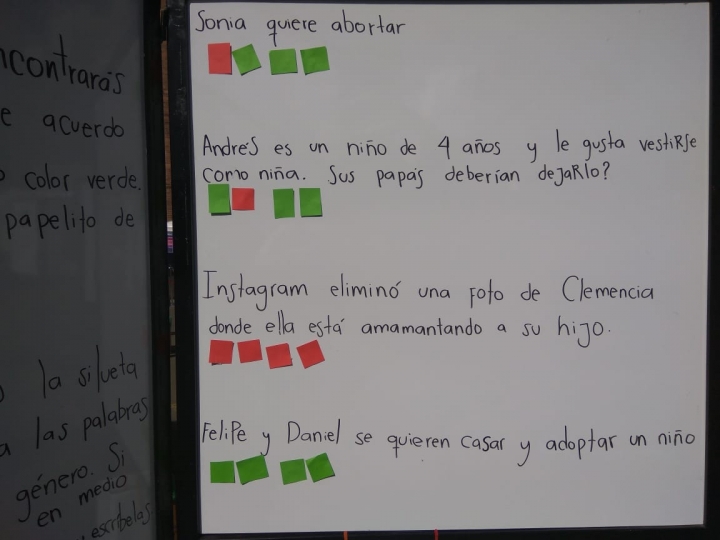 ncontrarás
e acuerdo
color verde.
papelito de
la silueta
a las palabras
género. Si
en medio
, escríbelas
Sonia quiere abortar
Andrés es un niño de 4 años y le gusta vestirse
como niña. Sus papás deberían dejarlo?
Instagram eliminó una foto de Clemencia
donde ella está amamantando a su hijo.
Felipe y Daniel se quieren casar y adoptar un niño